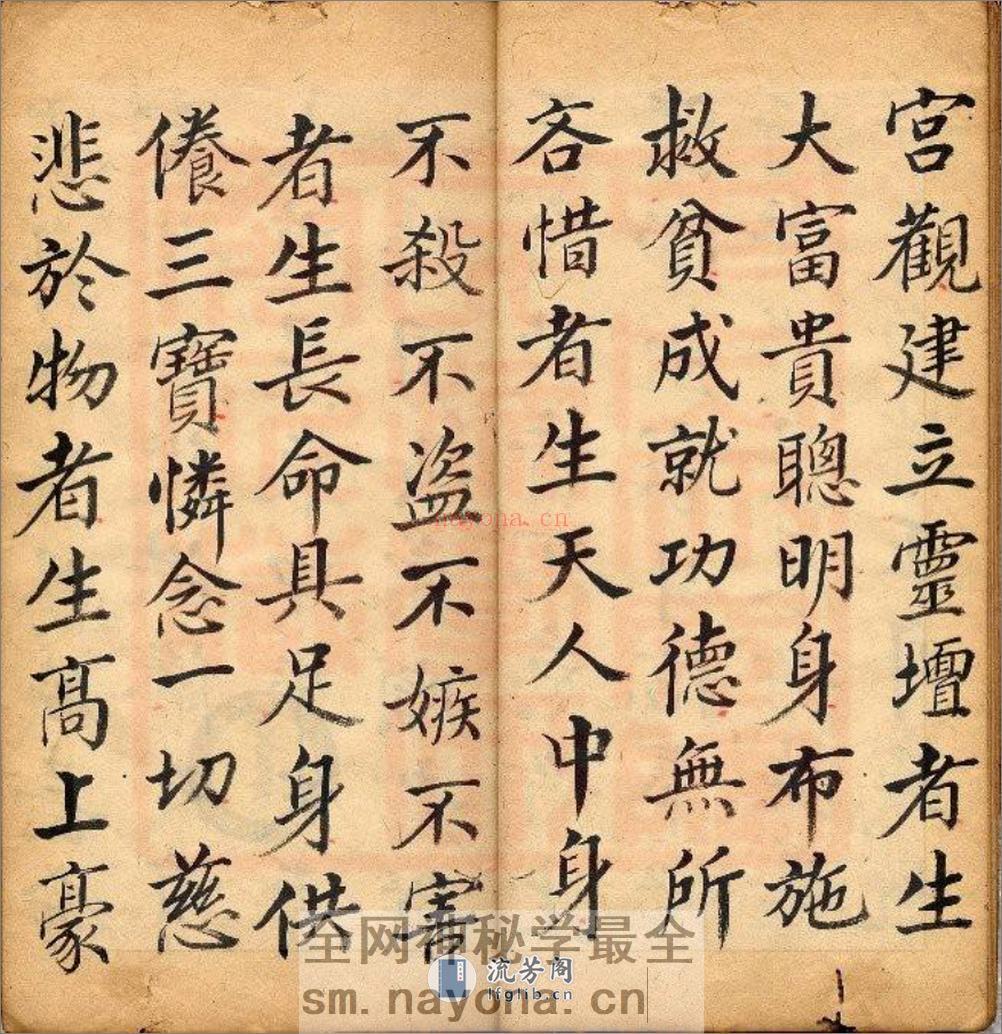 宮觀建立靈壇者生
大富貴聰明身布施
救貧成就功德無所
吝惜者生天人中身
不殺不盗不嫉不害
者生長命具足身供
養三寶憐念一切慈
悲於物者生髙上豪
nayona.cn
全网神秘学最全
流芳阁
lfglib.cn
sm.nayona.cn